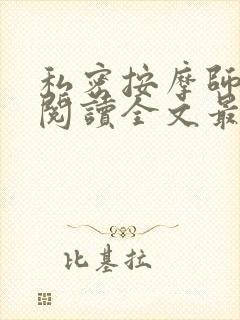 私密按摩師
閱讀全文最
比基拉